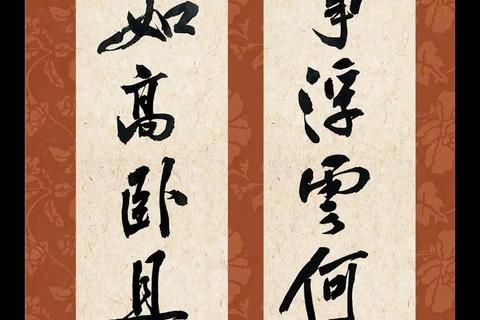 事浮雲何
如高卧且